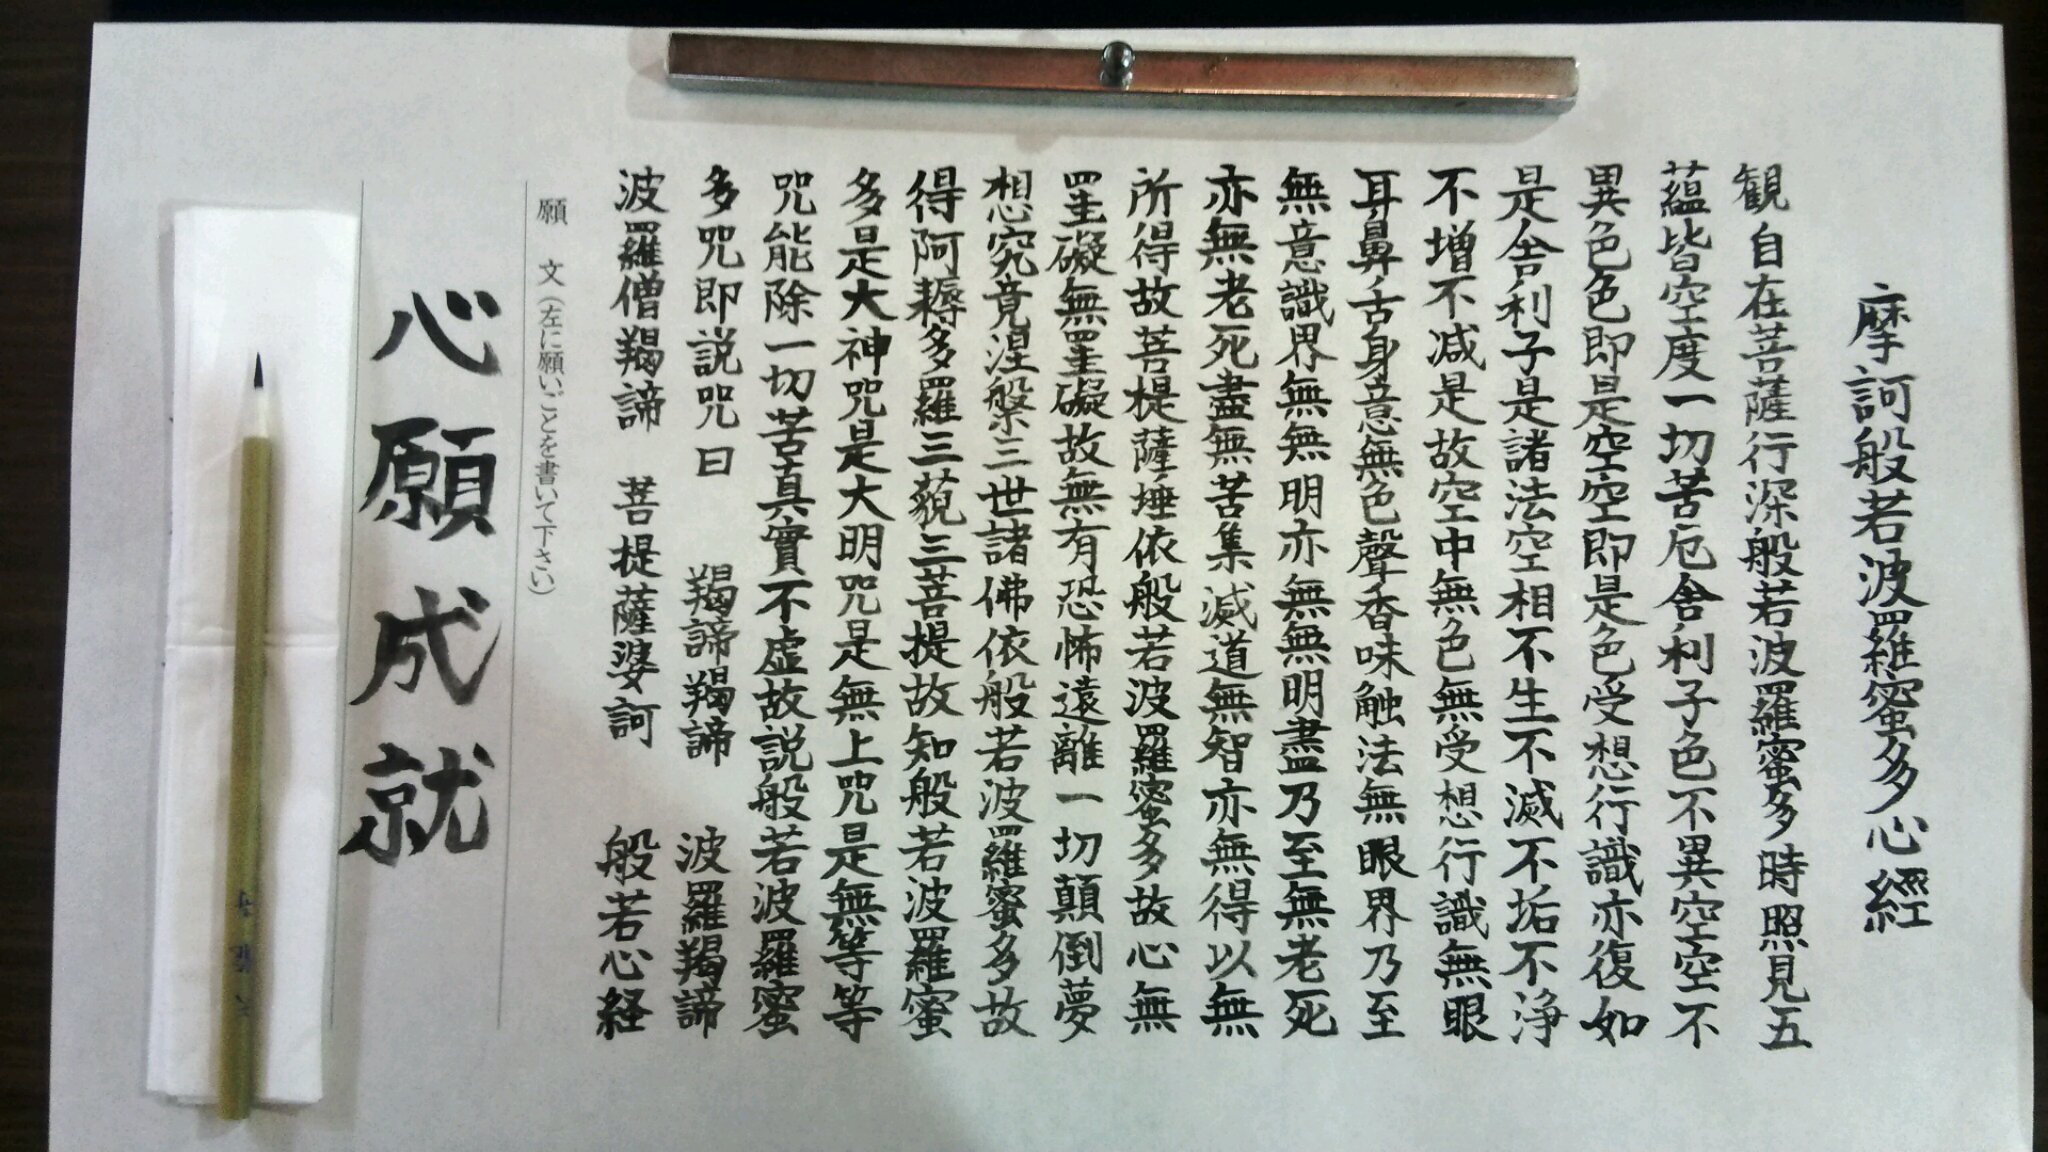 摩訶般若波羅蜜多心經
観自在菩薩行深般若波羅蜜多時照見五
蘊皆空度一切苦厄舎利子色不異空空不
異色色即是空空即是色受想行識亦復如
是舎利子是諸法空相不生不滅不垢不浄
不増不減是故空中無色無受想行識無眼
耳鼻舌身意無色聲香味触法無眼界乃至
無意識界無無明亦無無明盡乃至無老死
亦無老死盡無苦集滅道無智亦無得以無
所得故菩提薩埵依般若波羅蜜多故心無
罣礙無罣礙故無有恐怖遠離一切顛倒夢
想究竟涅槃三世諸佛依般若波羅蜜多故
得阿耨多羅三藐三菩提故知般若波羅蜜
多是大神咒是大明咒是無上咒是無等等
咒能除一切苦真實不虚故説般若波羅蜜
多咒即説咒曰 羯諦羯諦 波羅羯諦
波羅僧羯諦 菩提薩婆訶 般若心経
願 文（左に願いごとを書いて下さい）
心願成就